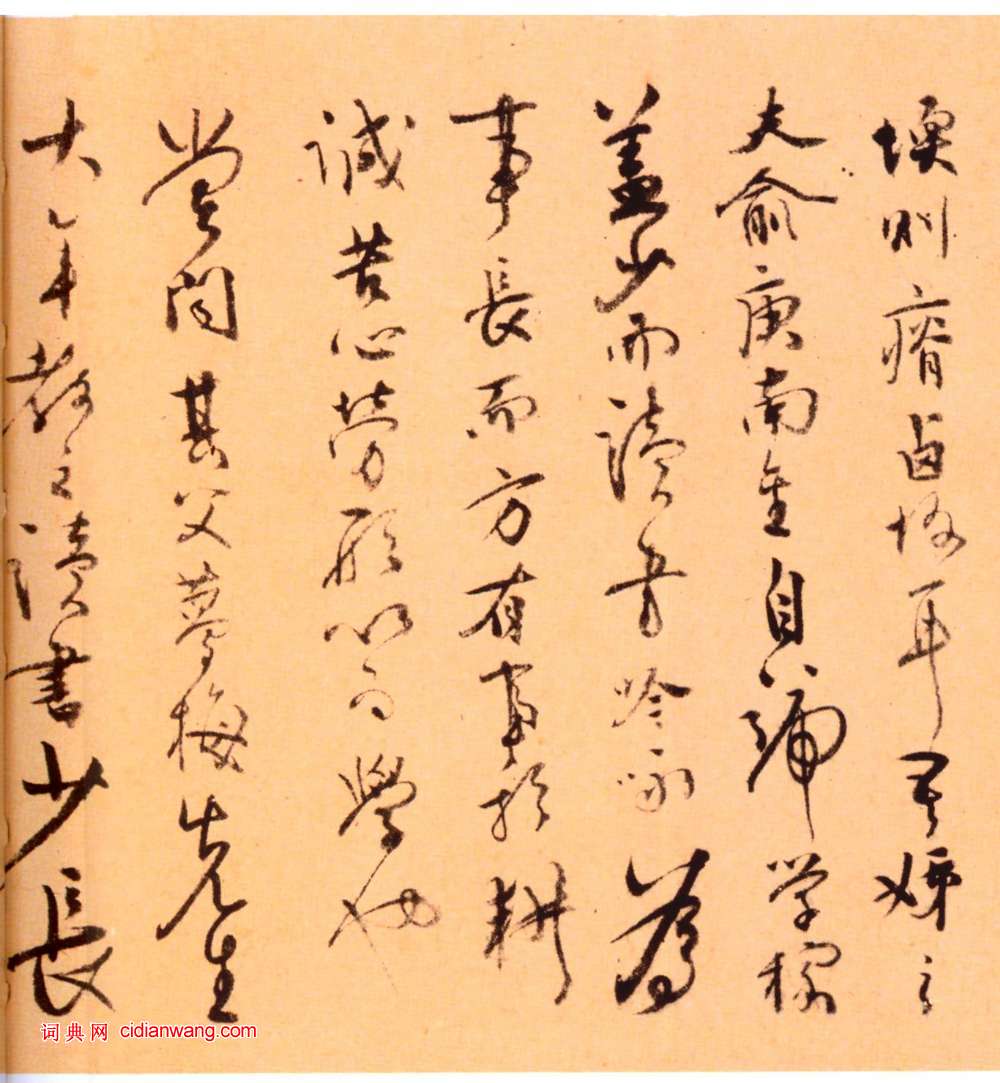 則瘠鹵耳姊之
夫俞庚南金自號學稼
盖少而讀書吟咏為
事長而方有事於耕
誠苦心勞形以為學也
嘗聞其父夢梅先生
年教之讀書少長
词典网 cidianwang.com